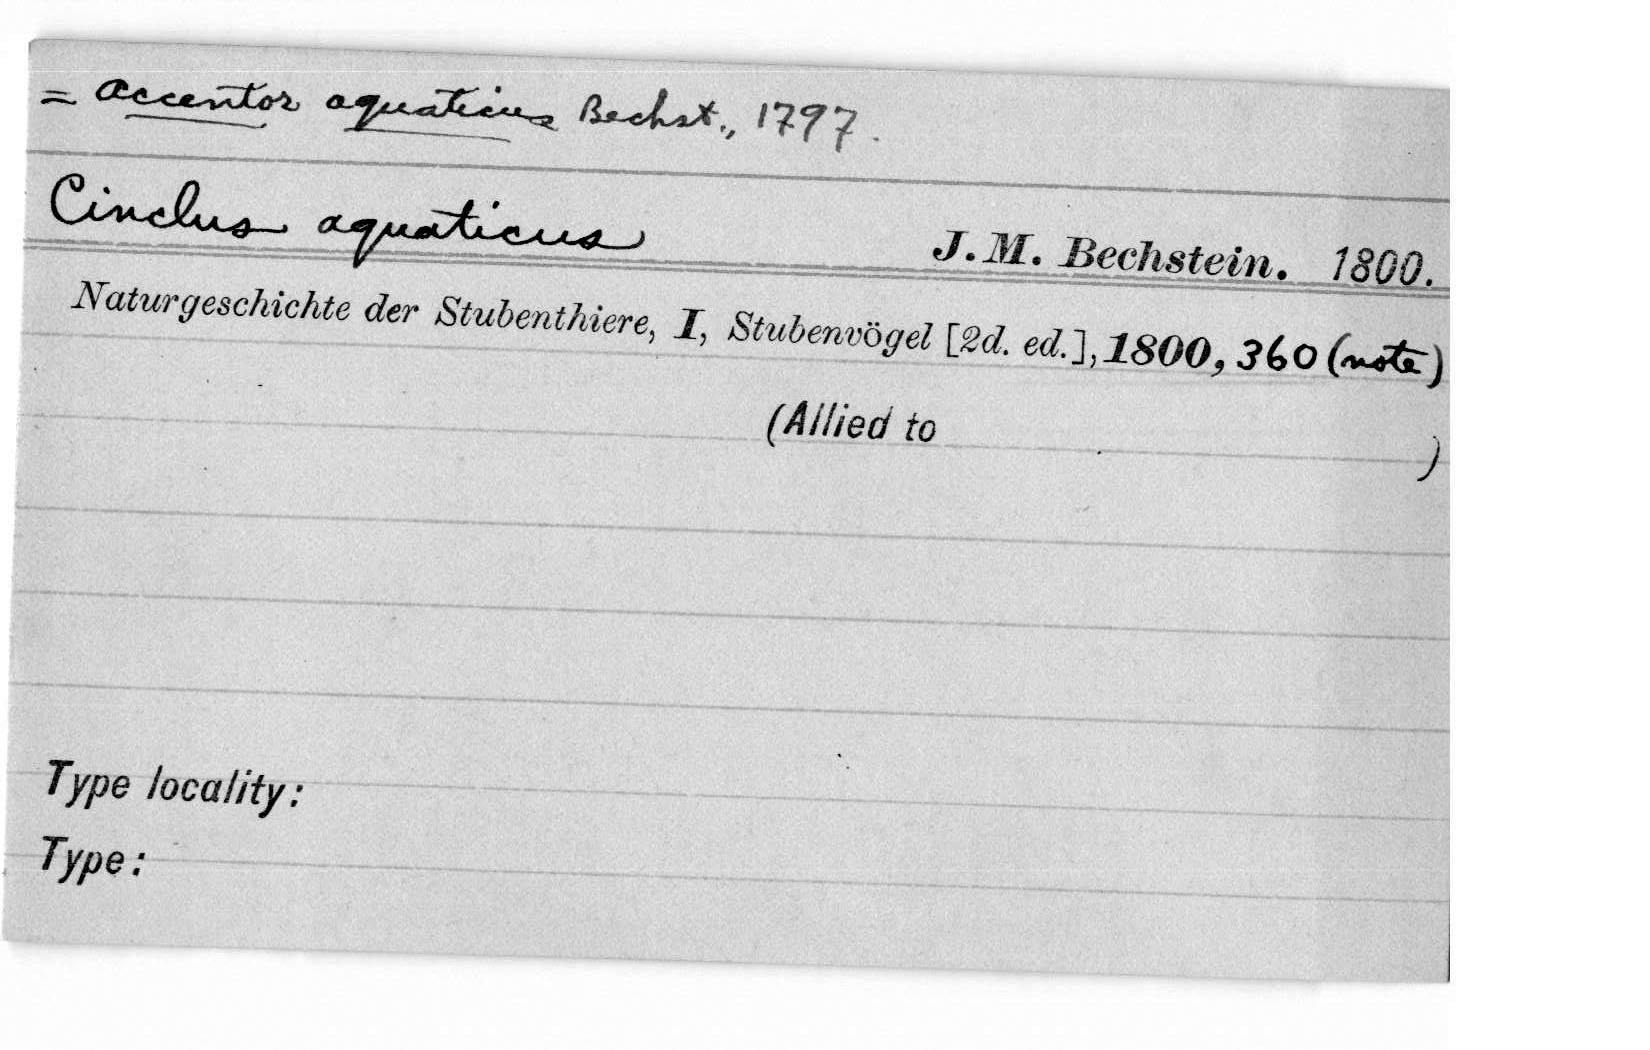 = Accentor aquaticus Bechst., 1797.
Cinclus aquaticus J. M. Bechstein. 1800.
Naturgeschichte der Stubenthiere, I, Stubenvögel [2d. ed.], 1800, 360 (note)
(Allied to )
Type locality:
Type: